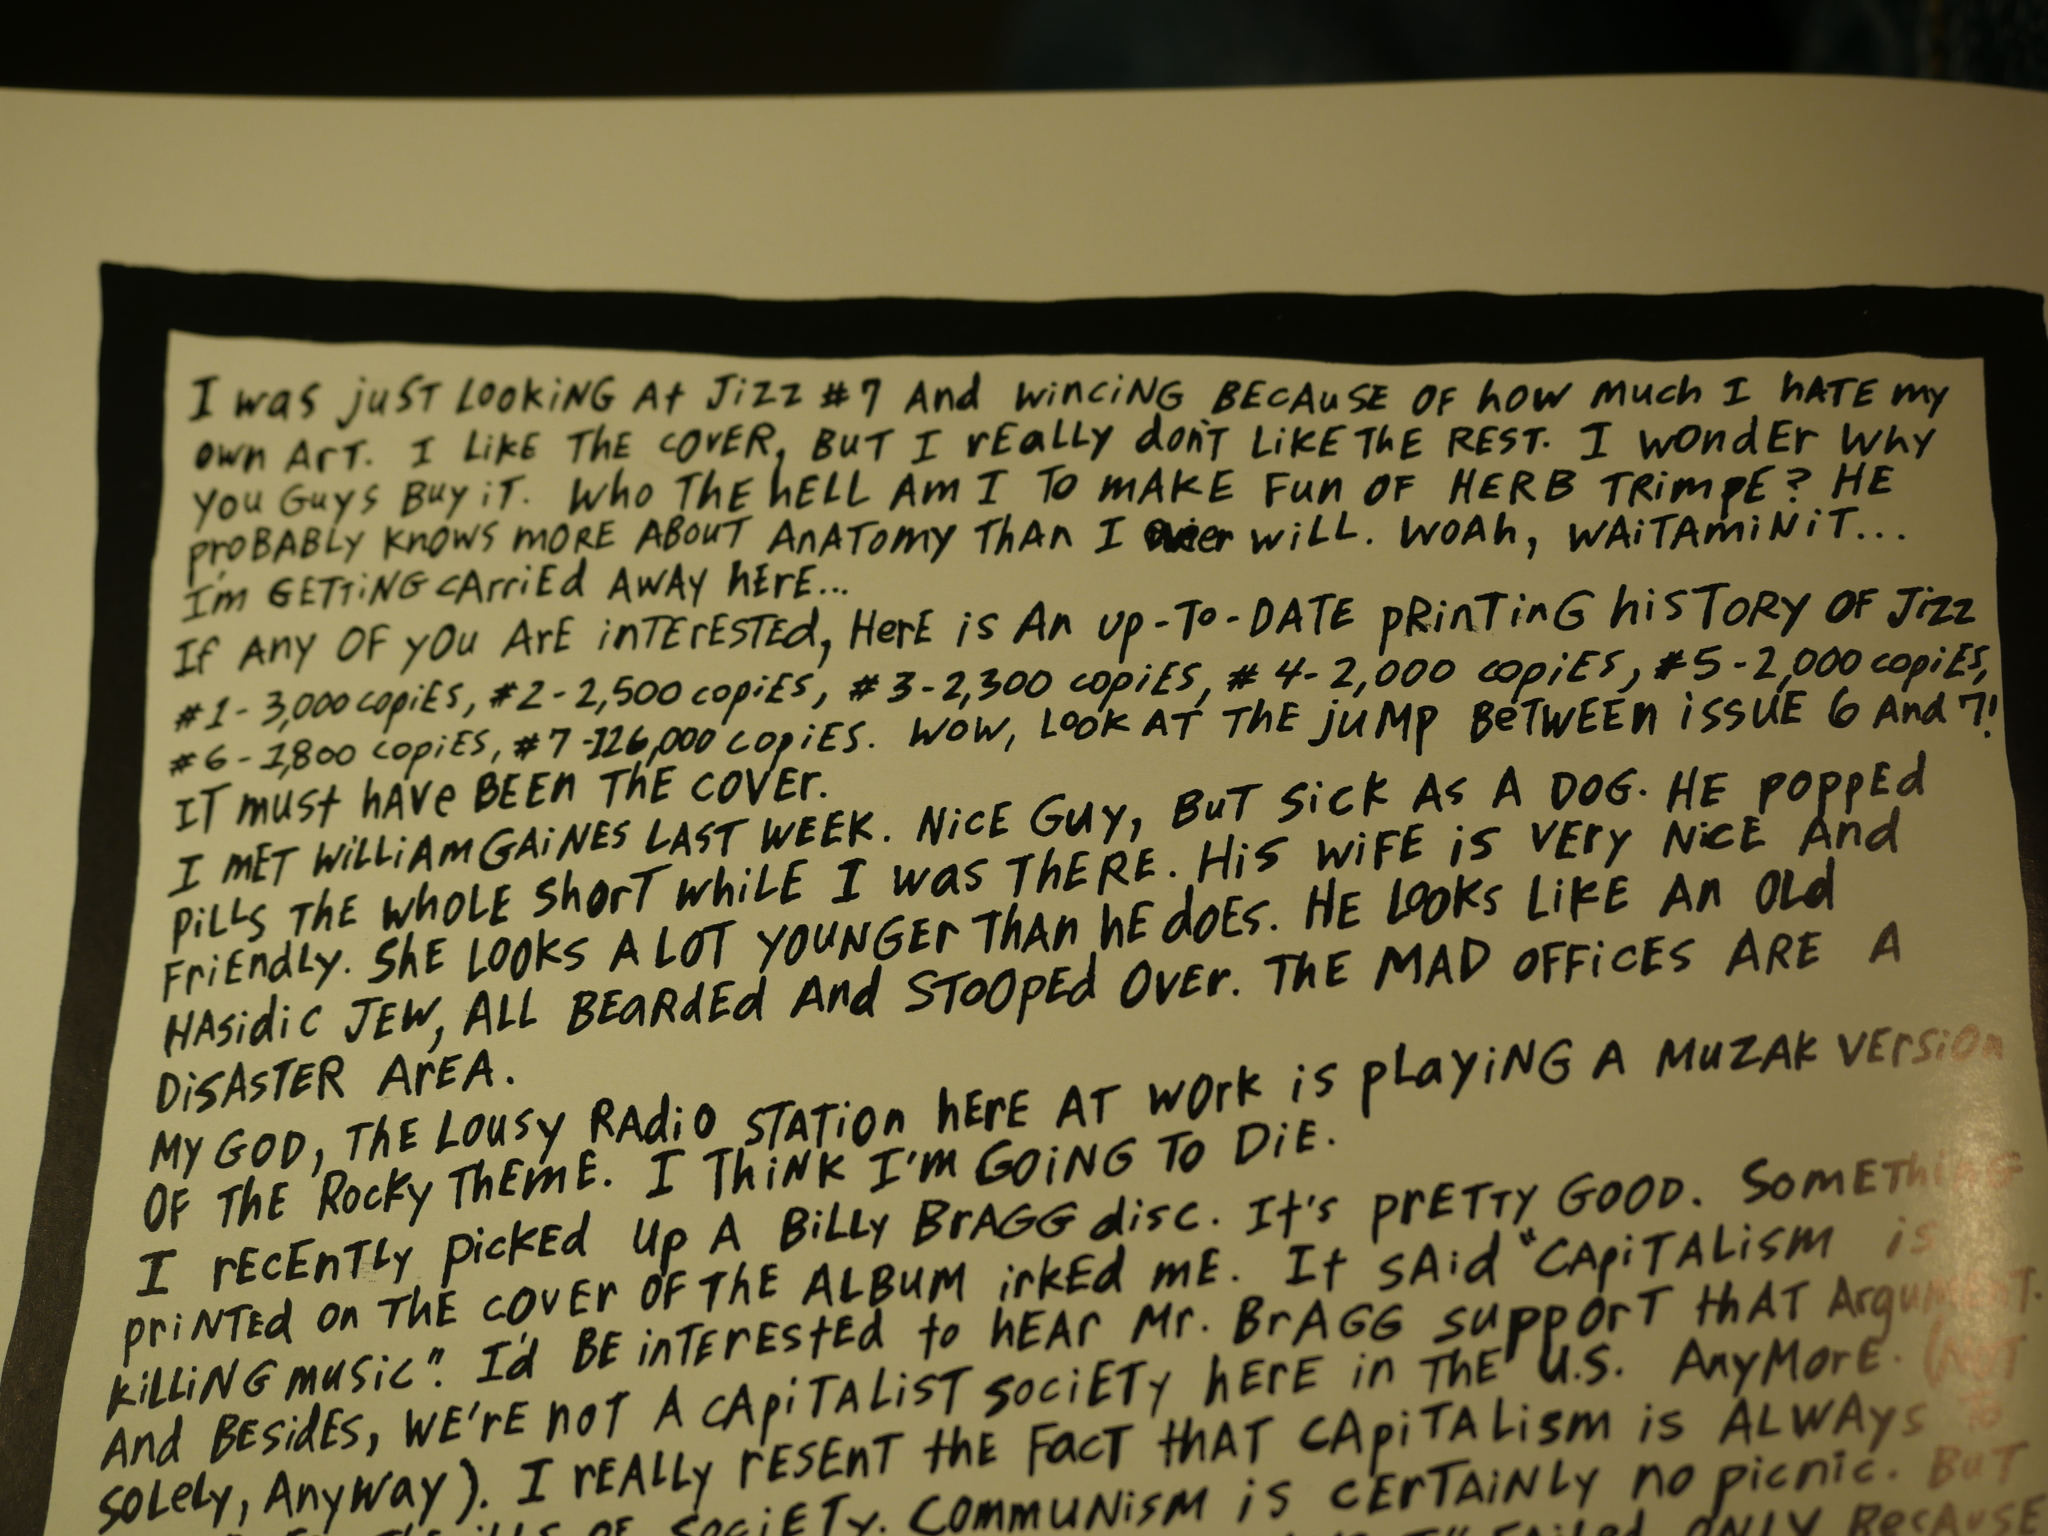 I was just LOOKiNG At Jizz #7 And wincING BECAuSE OF how much I hATE my
own ArT. I LikE THE COVER, BUT I rEally don't LIKE THE REST. I WOndEr Why
you Guys Buy iT. Who THE hELL Am I To mAKE Fun OF HERB TRimpE? HE
proBABLy KnowS mORE ABouT AnAToMy ThAn I will. WOAh, WAiTAmiNiT...
I'm GETTiNG cArriEd AWAy hErE...
If Any OF yOu ArE inTErESTEd, HerE is An up-To-DATE pRinTinG hiSTORy OF Jizz
#1-3,000 copiES, #2-2,500 copiES, #3-2,300 copiES, #4-2,000 copiES, #5-2,000 copiES,
#6-1,800 copiES, #7-126,000 copiES. Wow, Look AT THE juMp BeTWEEn issuE 6 And 7!
IT must hAve BEEN THE COVEr.
I MET WiLLiAm GAiNES LAST WEEK. NicE Guy, BuT Sick AS A DOG. HE poppEd
piLLS THE whOLE ShorT whiLE I was THERE. His wiFE is VEry NicE And
FriEndLy. SHE LOOKs A LOT yOuNGEr THAn hE doES. HE LOOKs LiKE An OLd
HAsidic JEW, ALL BEaRdEd And STOOpEd OVEr. THE MAD OFFicES ARE A
DiSASTER ArEA.
My GOD, THE LOusy RAdio STATion hErE AT wOrk is pLAyiNG A MuZAK VErsion
OF THE Rocky THEmE. I THiNK I'm GOiNG To DiE.
I rECEnTLy picKEd Up A BiLLy BrAGG disc. It's prETTy GOOD. SomETHiNG
priNTEd on THE COVEr OF THE ALBUM irkEd mE. It SAid "CApiTALism is
kiLLiNG music". I'd BE inTErEstEd to hEAr Mr. BrAGG suppOrT thAT ArguMENT.
And BEsidES, WE'rE noT A cApiTALisT sociETy hErE in THE U.S. AnyMorE. (NOT
soLely, AnyWAy). I rEALLy rESEnT thE FacT thAT CApiTALism is ALWAys To
OF sociETy. COmmuNism is cErTAiNLy no picnic. BuT
ONLy BEcAuSE